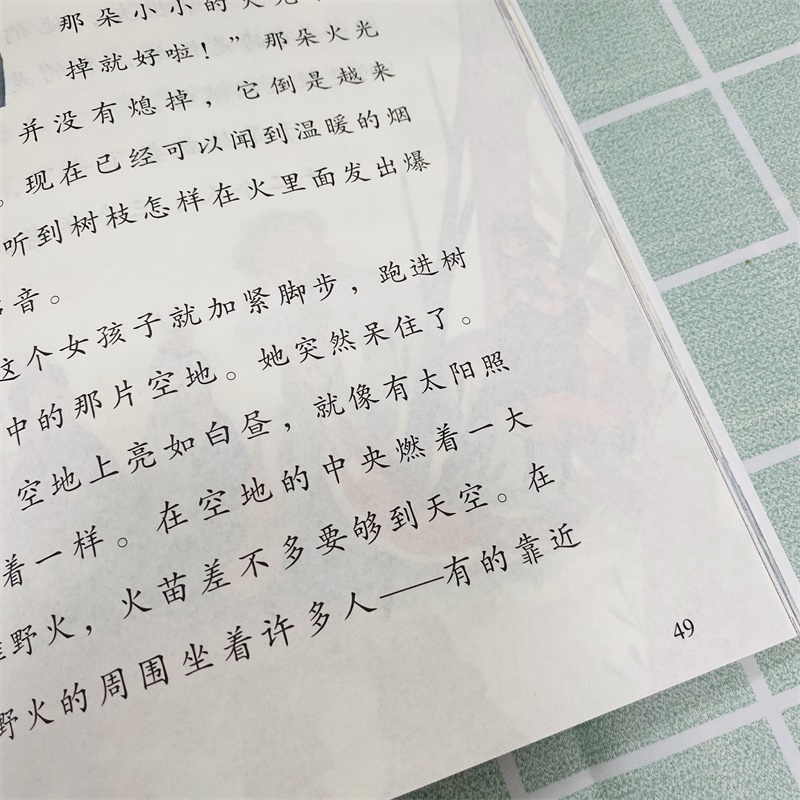 那朵小小的火光
掉就好啦！”那朵火光
并没有熄掉，它倒是越来
。现在已经可以闻到温暖的烟
听到树枝怎样在火里面发出爆
音。
这个女孩子就加紧脚步，跑进树
中的那片空地。她突然呆住了。
空地上亮如白昼，就像有太阳照
着一样。在空地的中央燃着一大
野火，火苗差不多要够到天空。在
野火的周围坐着许多人——有的靠近
49